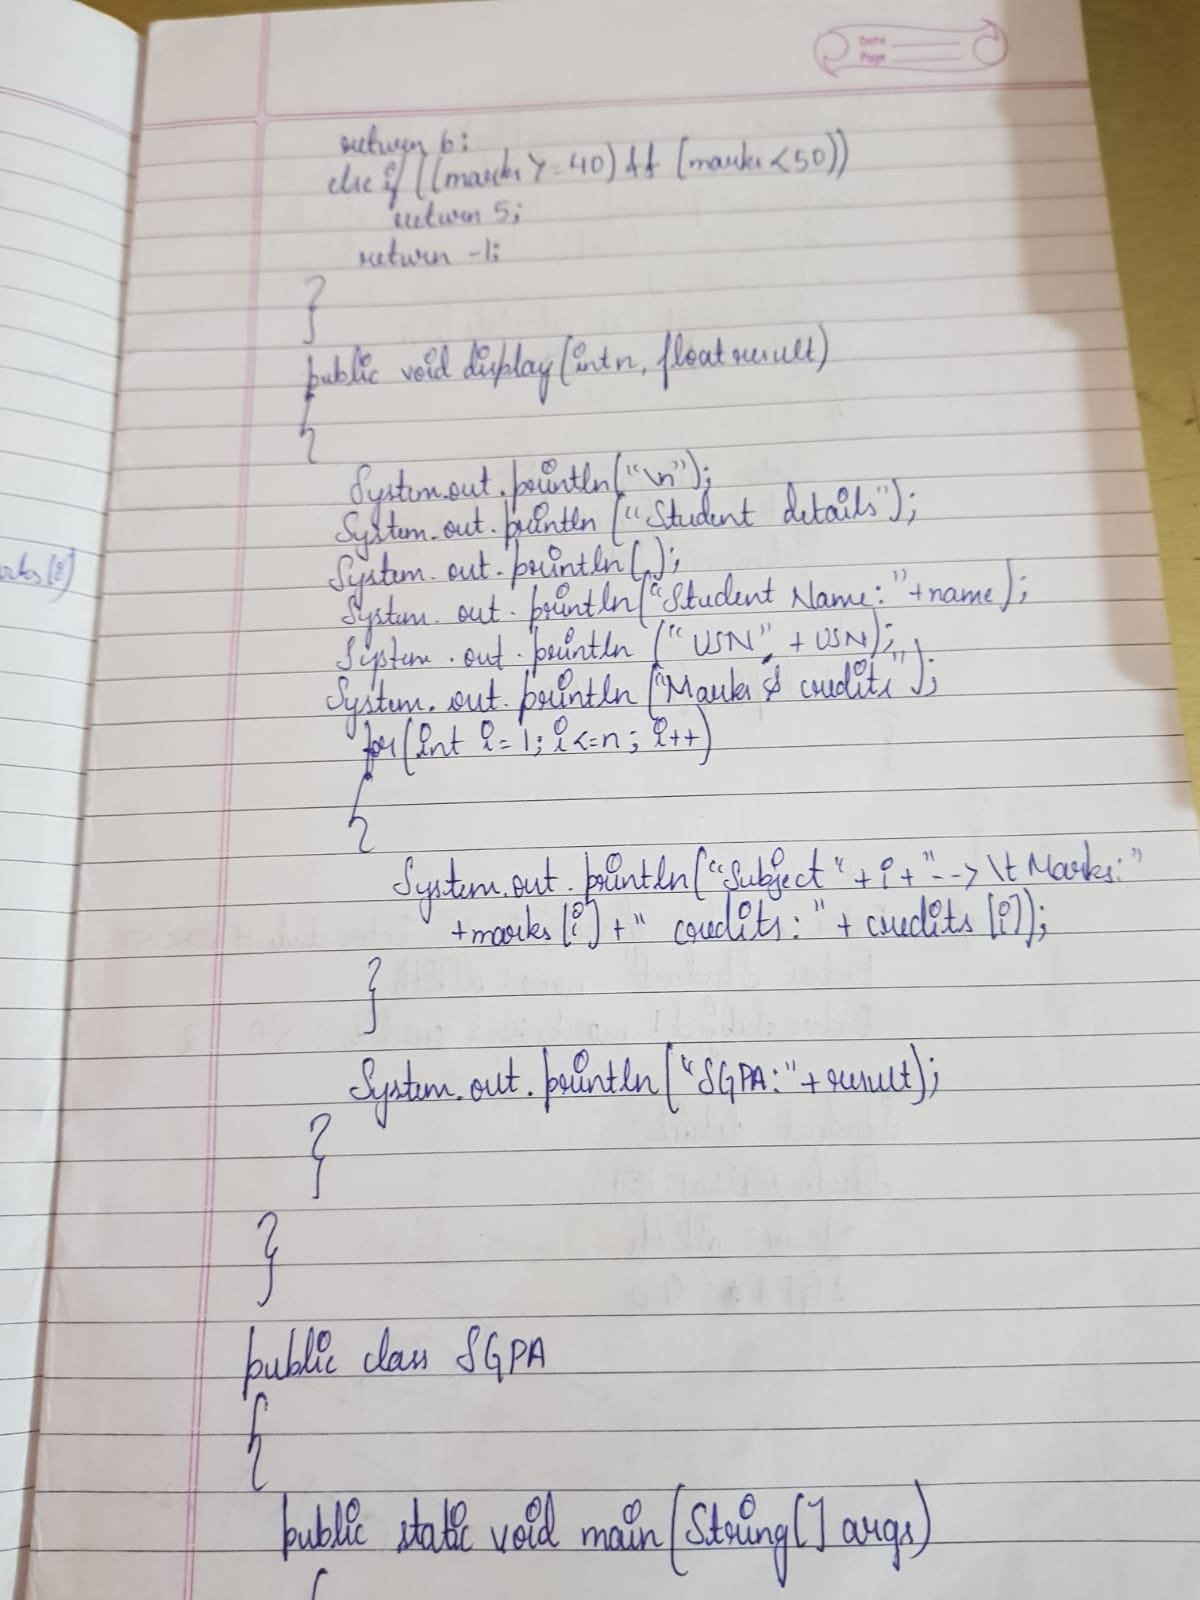 Date
Page
return 6;
else if ((marks >= 40) && (marks < 50))
return 5;
return -1;
}
public void display(int n, float result)
{
System.out.println("\n");
System.out.println("Student details");
System.out.println( );
System.out.println("Student Name:"+name);
System.out.println("USN" + USN);
System.out.println("Marks & credits");
for(int i=1; i<=n; i++)
{
System.out.println("Subject"+i+"--> \t Marks:"
+marks[i]+" credits:"+credits[i]);
}
System.out.println("SGPA:"+result);
}
}
public class SGPA
{
public static void main(String[] args)
{